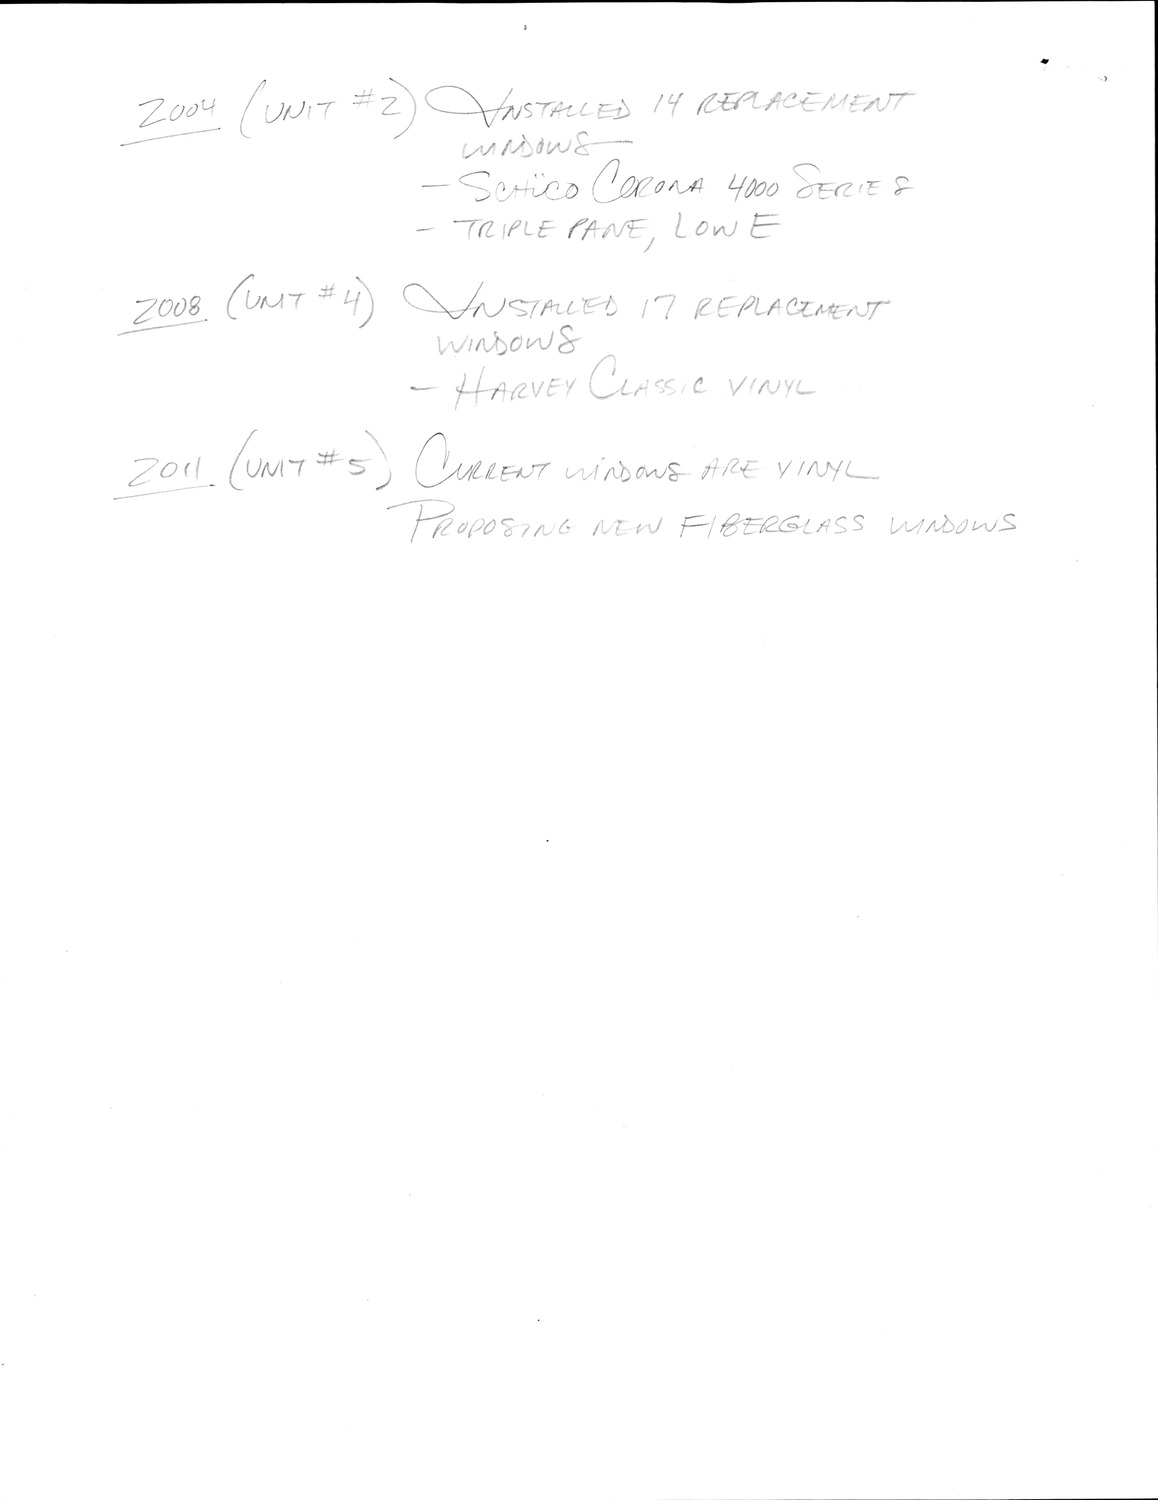 2004 (UNIT #2) INSTALLED 14 REPLACEMENT
WINDOWS
- SCHÜCO CORONA 4000 SERIES
- TRIPLE PANE, LOW E
2008 (UNIT #4) INSTALLED 17 REPLACEMENT
WINDOWS
- HARVEY CLASSIC VINYL
2011 (UNIT #5) CURRENT WINDOWS ARE VINYL
PROPOSING NEW FIBERGLASS WINDOWS